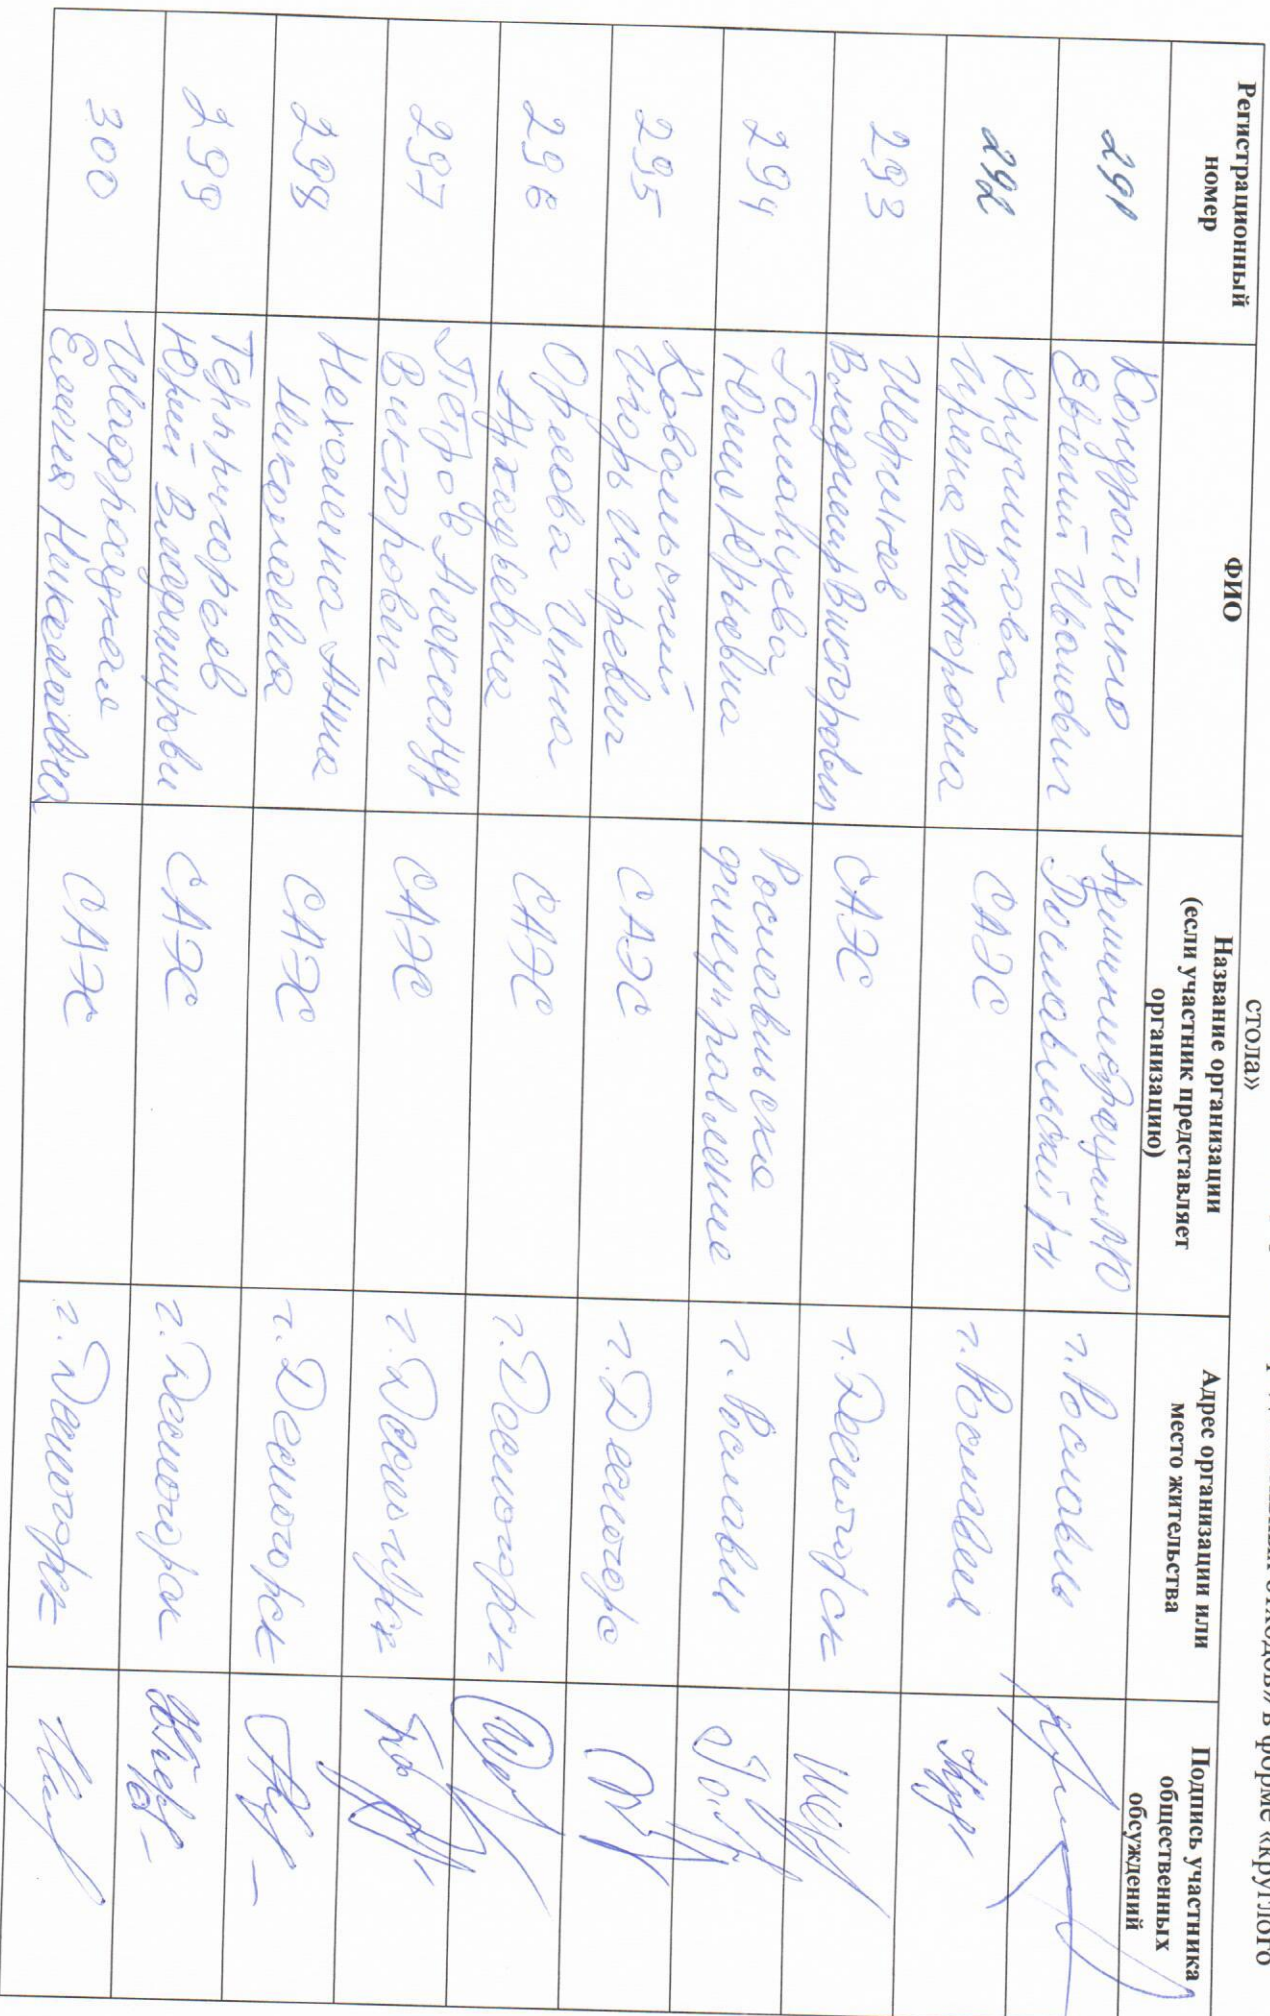 отходов» в форме «круглого
стола»
Регистрационный
номер
ФИО
Название организации
(если участник представляет
организацию)
Адрес организации или
место жительства
Подпись участника
общественных
обсуждений
291
Кондратенко
Евгений Иванович
Администрация МО
Рославльский
г. Рославль
292
Кругликова
Ирина Викторовна
САЭС
г. Рославль
293
Владимир Викторович
САЭС
г. Десногорск
294
Юлия Юрьевна
г. Рославль
295
Ковальский
Игорь Игоревич
САЭС
296
Орлова Инна
Аркадьевна
САЭС
г. Десногорск
297
Петров Александр
Викторович
САЭС
г. Десногорск
298
Анна
Николаевна
САЭС
г. Десногорск
299
Тер-Григорьев
Юрий
САЭС
г. Десногорск
300
Елена Николаевна
САЭС
г. Десногорск